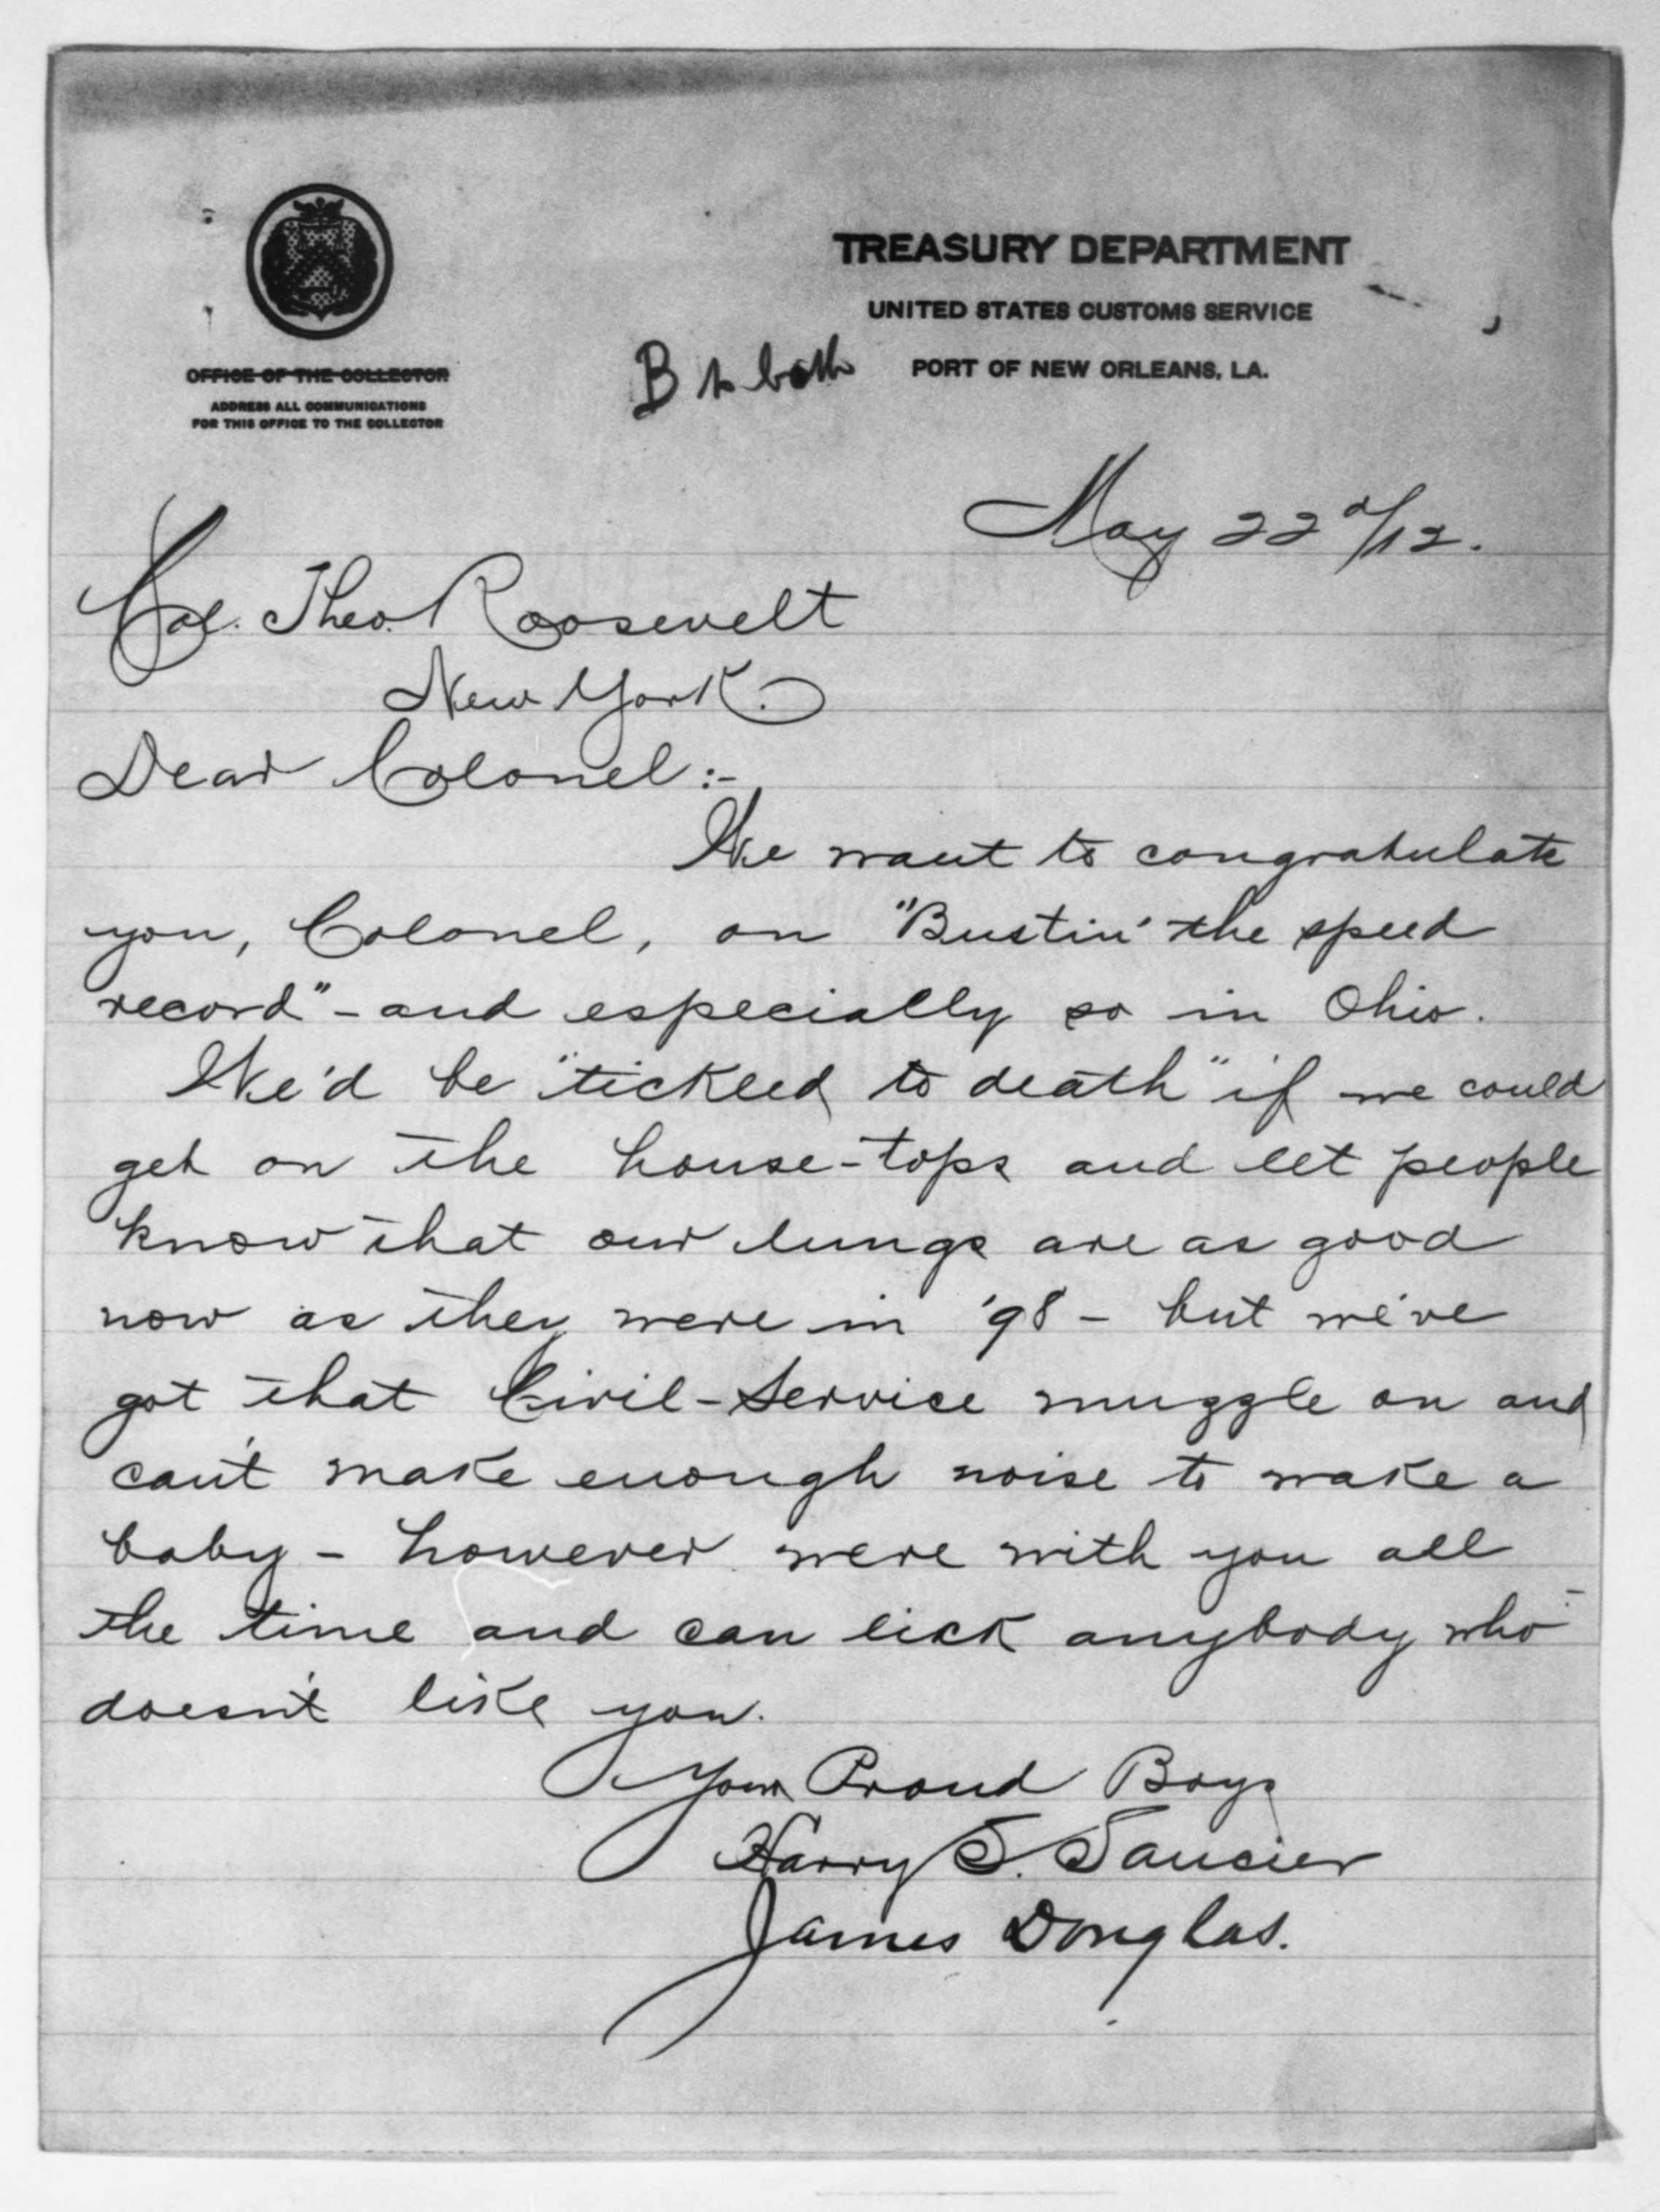 TREASURY DEPARTMENT
UNITED STATES CUSTOMS SERVICE
PORT OF NEW ORLEANS, LA.
OFFICE OF THE COLLECTOR
ADDRESS ALL COMMUNICATIONS
FOR THIS OFFICE TO THE COLLECTOR
B to both
May 22d/12.
Col. Theo. Roosevelt
New York.
Dear Colonel:-
We want to congratulate
you, Colonel, on "Bustin' the speed
record" - and especially so in Ohio.
We'd be "tickled to death" if we could
get on the house-tops and let people
know that our lungs are as good
now as they were in '98 - but we've
got that Civil-Service muggle on and
can't make enough noise to wake a
baby - however were with you all
the time and can lick anybody who
doesn't like you.
Your Proud Boys
Harry S. Saucier
James Douglas.